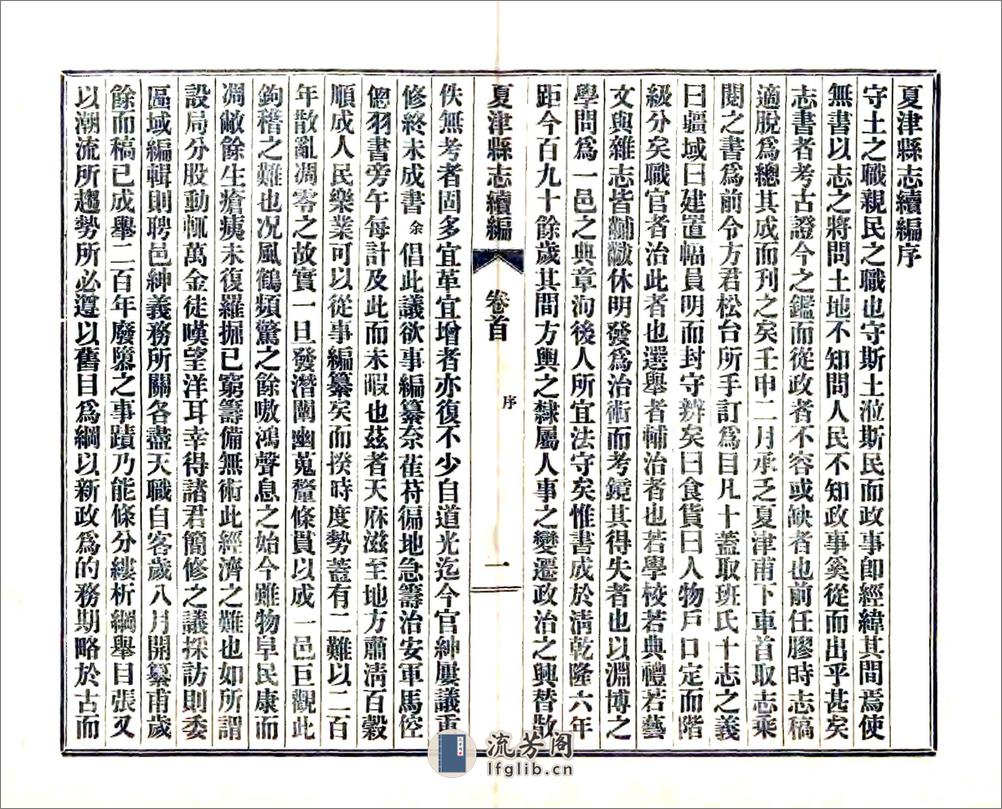 夏津縣志續編序
守土之職親民之職也守斯土涖斯民而政事卽經緯其間焉使
無書以志之將問土地不知問人民不知政事奚從而出乎甚矣
志書者考古證今之鑑而從政者不容或缺者也前任膠時志稿
適脫爲總其成而刊之矣壬申二月承乏夏津甫下車首取志乘
閱之書爲前令方君松台所手訂爲目凡十蓋取班氏十志之義
曰疆域曰建置幅員明而封守辨矣曰食貨曰人物戶口定而階
級分矣職官者治此者也選舉者輔治者也若學校若典禮若藝
文與雜志皆黼黻休明發爲治術而考鏡其得失者也以淵博之
學問爲一邑之典章洵後人所宜法守矣惟書成於淸乾隆六年
距今百九十餘歲其間方輿之隸屬人事之變遷政治之興替散
夏津縣志續編 卷首 序 一
佚無考者固多宜革宜增者亦復不少自道光迄今官紳屢議重
修終未成書余倡此議欲事編纂奈萑苻徧地急籌治安軍馬倥
傯羽書旁午每計及此而未暇也茲者天庥滋至地方肅淸百穀
順成人民樂業可以從事編纂矣而揆時度勢蓋有二難以二百
年散亂凋零之故實一旦發潛闡幽蒐釐條貫以成一邑巨觀此
鉤稽之難也况風鶴頻驚之餘嗷鴻聲息之始今雖物阜民康而
凋敝餘生瘡痍未復羅掘已窮籌備無術此經濟之難也如所謂
設局分股動輒萬金徒嘆望洋耳幸得諸君簡修之議採訪則委
區域編輯則聘邑紳義務所關各盡天職自客歲八月開纂甫歲
餘而稿已成舉二百年廢墜之事蹟乃能條分縷析綱舉目張又
以潮流所趨勢所必遵以舊目爲綱以新政爲的務期略於古而
流芳閣
lfglib.cn